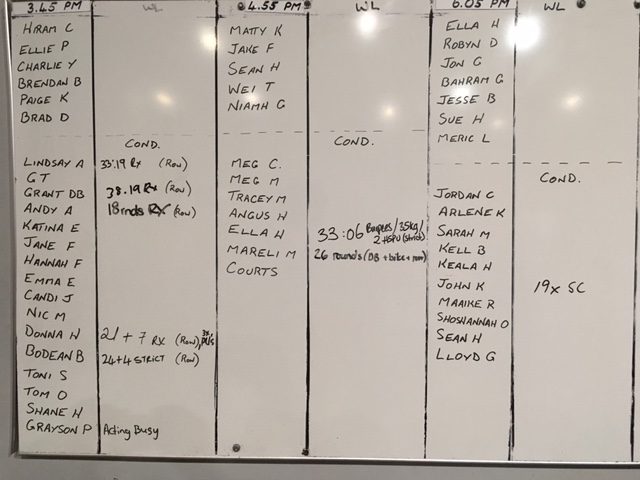 3.45 PM WL
HIRAM C
ELLIE P
CHARLIE Y
BRENDAN B
PAIGE K
BRAD D
COND.
LINDSAY A 33:19 Rx (Row)
GT
GRANT DB 38.19 Rx (Row)
ANDY A 18rnds RX (Row)
KATINA E
JANE F
HANNAH F
EMMA E
CANDI J
NIC M
DONNA H 21 + 7 RX (Row)
BODEAN B 24+4 STRICT (Row)
TONI S
TOM O
SHANE H
GRAYSON P Acting Busy
4.55 PM WL
MATTY K
JAKE F
SEAN H
WEI T
NIAMH G
COND.
MEG C.
MEG M
TRACEY M
ANGUS H
ELLA H 33:06 Burpees/35kg/
2 HSPU (strict)
MARELI M 26 rounds (DB + bike + row)
COURTS
6.05 PM WL
ELLA H
ROBYN D
JON G
BAHRAM G
JESSE B
SUE H
MERIC L
COND.
JORDAN C
ARLENE K
SARAH M
KELL B
KEALA H
JOHN K 19x SC
MAAIKE R
SHOSHANNAH O
SEAN H
LLOYD G